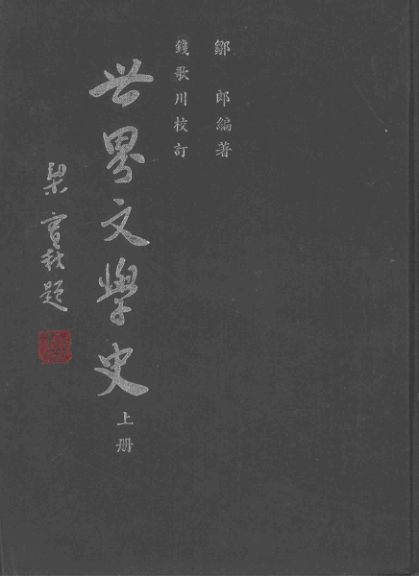 鄒郎編著
錢歌川校訂
世界文學史
上册
梁實秋題